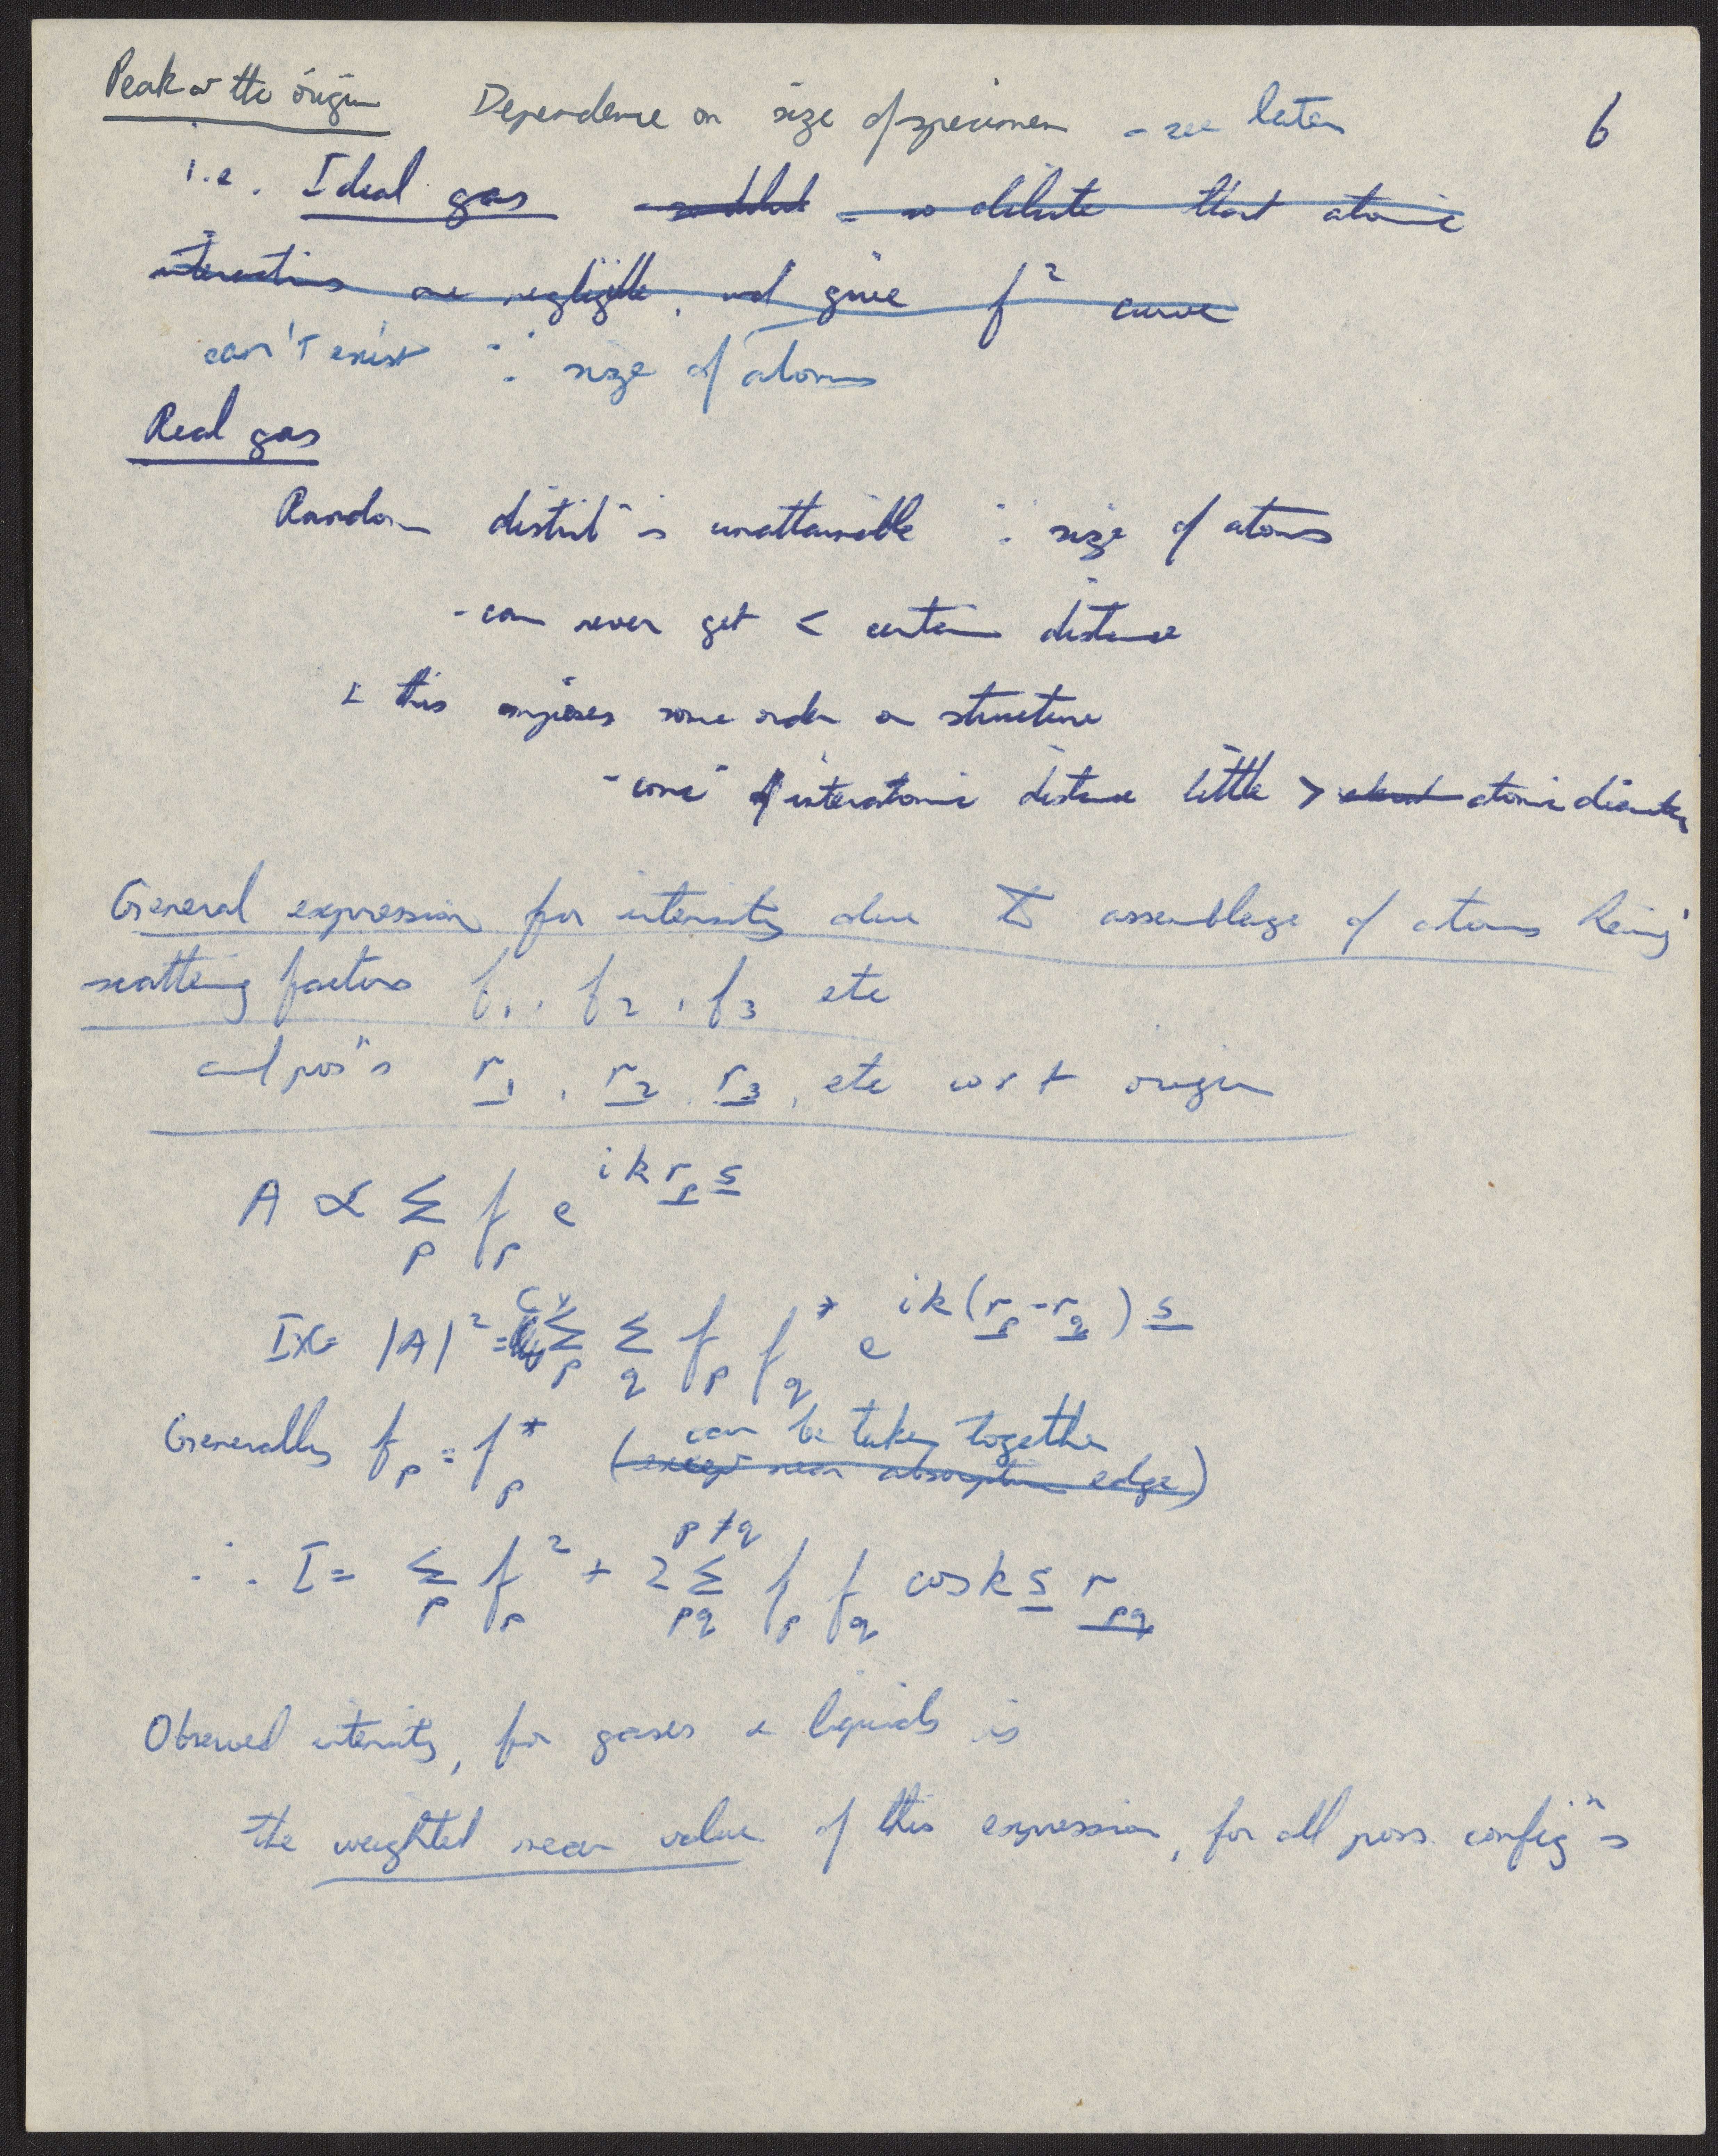 Peak at the origin Dependence on size of specimen - see later 6
i.e. Ideal gas - so dilute - so dilute that atomic
interactions are negligible, and give f² curve
can't exist ∵ size of atoms
Real gas
Random distribⁿ is unattainable ∵ size of atoms
- can never get < certain distance
& this imposes some order on structure
- concⁿ of interatomic distance little > about atomic diameter
General expression for intensity due to assemblage of atoms having
scattering factors f₁, f₂, f₃ etc
and posⁿs r₁, r₂, r₃, etc wrt origin
A ∝ Σ_p f_p e^{ik r_p s}
I ∝ |A|² = Σ_p Σ_q f_p f_q* e^{ik(r_p - r_q) s}
can be taken together
Generally f_p = f_p* (except near absorption edge)
∴ I = Σ_p f_p² + 2 Σ_{pq}^{p≠q} f_p f_q cos k s r_pq
Observed intensity, for gases & liquids is
the weighted mean value of this expression, for all poss. configⁿs